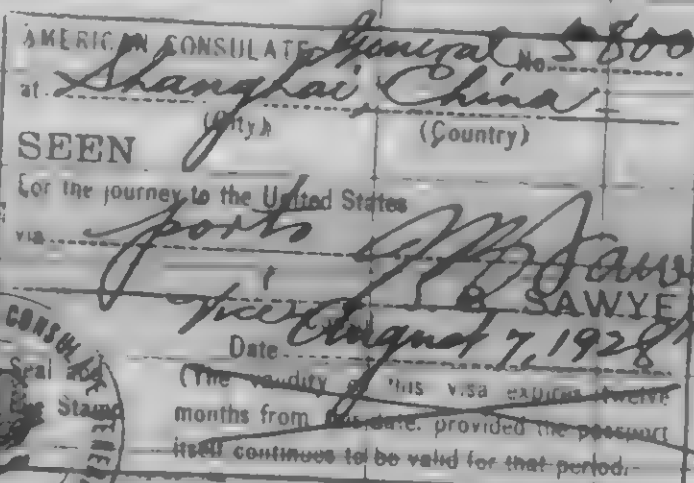 AMERICAN CONSULATE General No. 5800
at Shanghai China
(City) (Country)
SEEN
For the journey to the United States
via ports
SAWYE
Vice
Date August 7, 1928
(The validity of this visa expires twelve
months from this date, provided the passport
itself continues to be valid for that period.
CONSUL
Seal and
Stamp